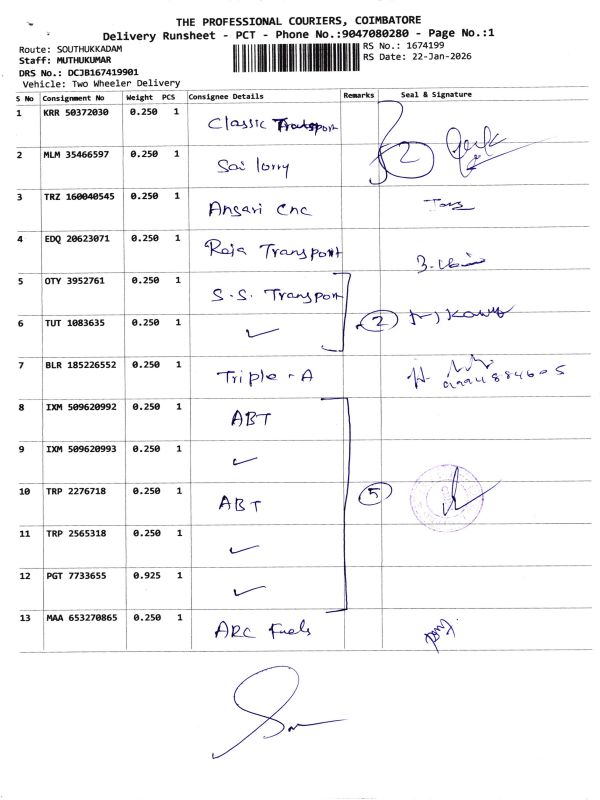 THE PROFESSIONAL COURIERS, COIMBATORE
Delivery Runsheet - PCT - Phone No.:9047080280 - Page No.:1
Route: SOUTHUKKADAM
RS No.: 1674199
Staff: MUTHUKUMAR
RS Date: 22-Jan-2026
DRS No.: DCJB167419901
Vehicle: Two Wheeler Delivery
S No Consignment No Weight PCS Consignee Details Remarks Seal & Signature
1 KRR 50372030 0.250 1 Classic Transport
2 MLM 35466597 0.250 1 Sai lorry 2
3 TRZ 160040545 0.250 1 Ansari cnc
4 EDQ 20623071 0.250 1 Raja Transport
5 OTY 3952761 0.250 1 S.S. Transport
6 TUT 1083635 0.250 1 ✓ 2
7 BLR 185226552 0.250 1 Triple-A
8 IXM 509620992 0.250 1 ABT
9 IXM 509620993 0.250 1 ✓
10 TRP 2276718 0.250 1 ABT 5
11 TRP 2565318 0.250 1 ✓
12 PGT 7733655 0.925 1 ✓
13 MAA 653270865 0.250 1 ARC Fuels